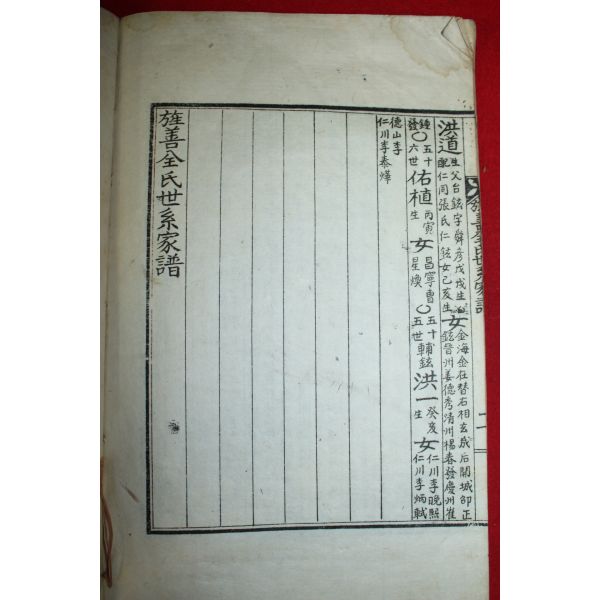 旌善全氏世系家譜
二
洪道 生父台鉉字舜彦戊戌生 配仁同張氏仁鉉女己亥生 女 金海金在替石相玄咸后開城正 鉉晉州姜德秀清州楊春發慶州崔
鍾發〇五十六世 佑植 丙寅生 女 昌寧曹星煥〇五十五世 輔鉉 洪一 癸亥生 女 仁川李晩熙仁川李炳軾
德山李仁川李泰燁
旌善全氏世系家譜